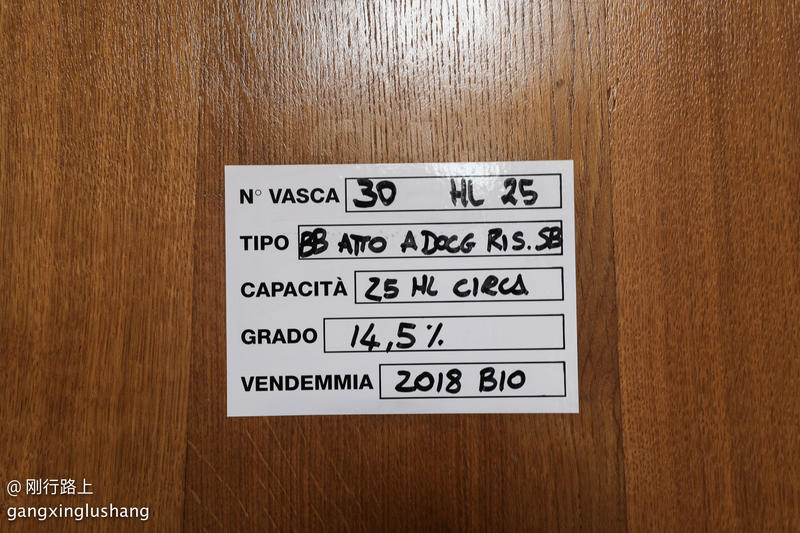 N° VASCA 30 HL 25
TIPO BB ATTO A DOCG RIS. SB
CAPACITÀ 25 HL CIRCA
GRADO 14,5%
VENDEMMIA 2018 BIO
@ 刚行路上
gangxinglushang